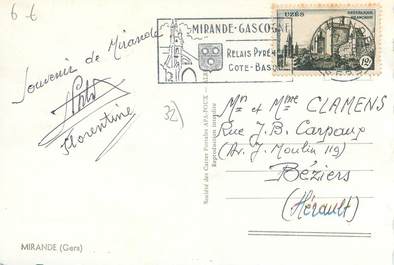 6-6
MIRANDE-GASCOGNE
RELAIS PYRÉN
COTE-BASQU
UZÈS
RÉPUBLIQUE
FRANÇAISE
12F
Souvenir de Mirande
Florentine
32)
Société des Cartes Postales APA-POUX - ALBI
Reproduction interdite
Mr et Mme CLAMENS
Rue J.B. Carpeaux
(Av. J. Moulin 119)
Béziers
(Hérault)
MIRANDE (Gers)